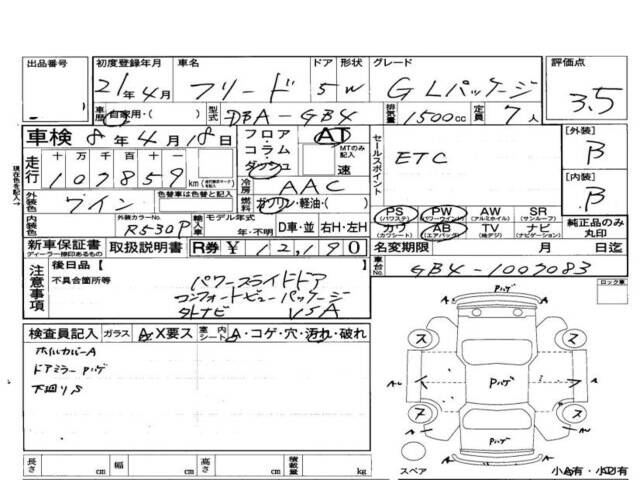 出品番号 初度登録年月 車名 ドア 形状 グレード 評価点
21年4月 フリード 5 W GLパッケージ 3.5
車歴 自家用・( ) 型式 DBA-GB4 排気量 1500cc 定員 7人
車検 8年4月18日 フロア・コラム・ダッシュ AT MTのみ記入 速 セールスポイント ETC [外装] B
走行 十万千百十一 107859km
冷房 AAC [内装] B
現在色を記入→
外装色 ワイン 色替車は色替と記入 ガソリン・軽油・( )
PS(パワステ) PW(パワーウインド) AW(アルミホイル) SR(サンルーフ) 純正品のみ丸印
カワ(カワシート) AB(エアバッグ) TV(地デジ) ナビ(ナビゲーション)
内装色 外装カラーNo. R530P 輸入車 モデル年式 年・不明 D車・並 右H・左H
新車保証書 ディーラー捺印あるもの 取扱説明書 R券 ¥12,190 名変期限 月 日迄
注意事項 後日品【 】 車台No. GB4-1007083
不具合箇所等 パワースライドドア
コンフォートビューパッケージ
外ナビ VSA
ロック車
検査員記入 ガラス A・X要ス 室内シート A・コゲ・穴・汚れ・破れ
ホイルカバーA
ドアミラーPハゲ
下廻りS
Pハゲ
A A
ス ス
A Pハゲ A
ス ス
A Pハゲ A
長さ cm 幅 cm 高さ cm 積載量 kg スペア 小A有・小凹有